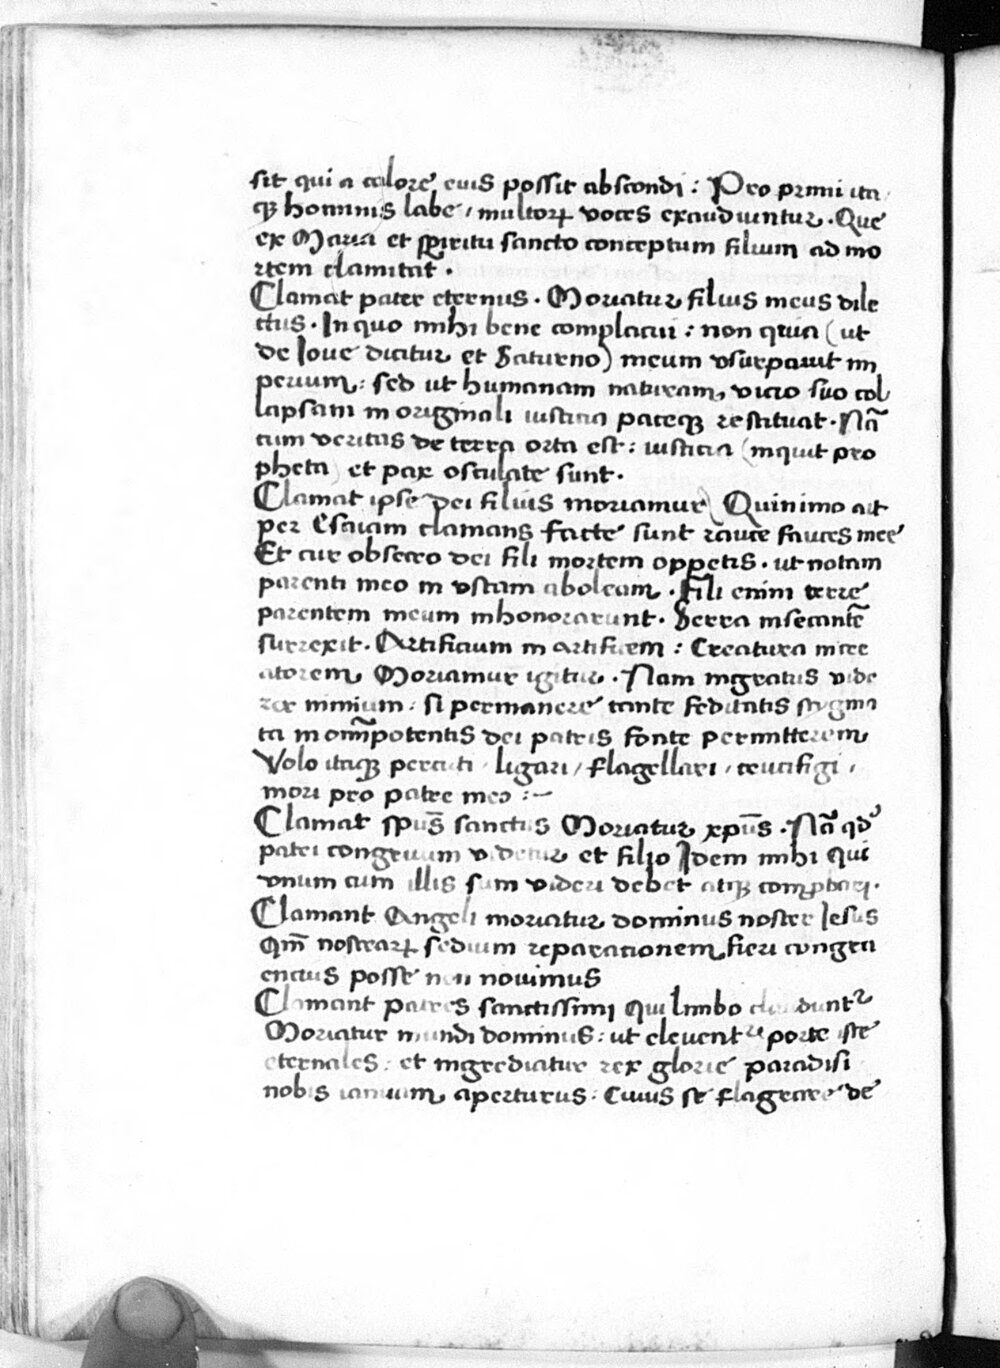 sit qui a calore eius possit abscondi : Pro primi ita
qꝫ hominis labe / multoꝝ voces exaudiuntur . Que
ex Maria et spiritu sancto conceptum filium ad mo
rtem clamitat .
Clamat pater eternus . Moriatur filius meus dile
ctus . In quo mihi bene complacui : non quia ( ut
de Ioue dicitur et Saturno ) meum vsurpauit im
perium : sed ut humanam naturam, vicio suo col
lapsam in originali iusticia paceqꝫ restituat . Nā
cum veritas de terra orta est : iusticia ( inquit pro
pheta ) et pax osculate sunt .
Clamat ipse dei filius moriamur ) Quinimo ait
per Esaiam clamans facte sunt rauce fauces mee
Et cur obsecro dei fili mortem oppetis . ut notam
parenti meo in vstam aboleam . Fili enim terre
parentem meum inhonorarunt . Serra in secantē
surrexit . Artificium in artificem : Creatura in cre
atorem Moriamur igitur . Nam ingratus vide
rer nimium : si permanere tante feditatis stygma
ta in om̄potentis dei patris fonte permitterem
Volo itaqꝫ percuti / ligari / flagellari / crucifigi /
mori pro patre meo : ~
Clamat sp̄us sanctus Moriatur xp̄us . Nā qd'
patri congruum videtur et filio Idem mihi qui
vnum cum illis sum videri debet atqꝫ comprobari .
Clamant Angeli moriatur dominus noster Iesus
qm̄ nostraꝝ sedium reparationem fieri congru
encius posse non nouimus
Clamant patres sanctissimi qui limbo clauduntr
Moriatur mundi dominus : ut eleuentr porte iste
eternales : et ingrediatur rex glorie paradisi
nobis ianuam aperturus : Cuius se flagrare de